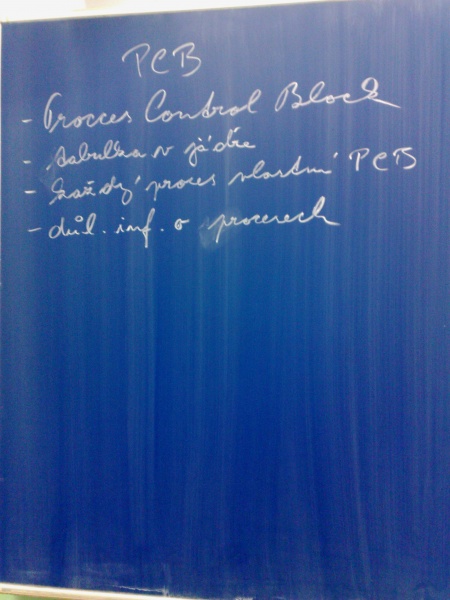 PCB
- Procces Control Block
- tabulka v jádře
- každý proces vlastní PCB
- důl. inf. o procesech